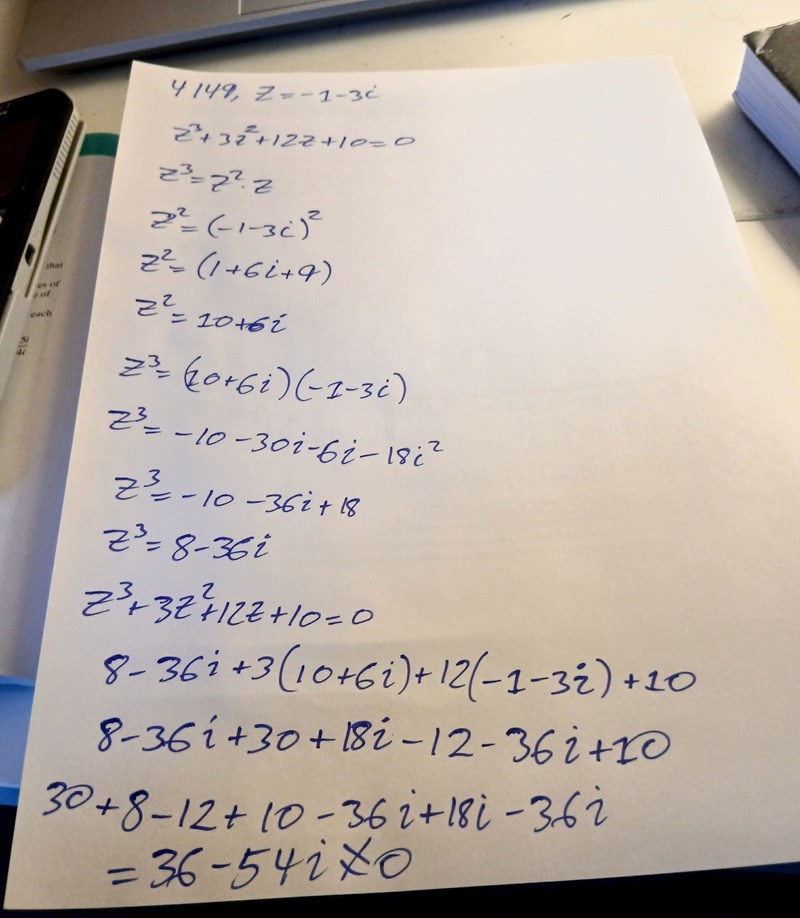 4149, z = -1-3i
z³+3z²+12z+10=0
z³=z²·z
z²=(-1-3i)²
z²=(1+6i+9)
z²=10+6i
z³=(10+6i)(-1-3i)
z³=-10-30i-6i-18i²
z³=-10-36i+18
z³=8-36i
z³+3z²+12z+10=0
8-36i+3(10+6i)+12(-1-3i)+10
8-36i+30+18i-12-36i+10
30+8-12+10-36i+18i-36i
=36-54i≠0
that
es of
e of
each
5i
4i